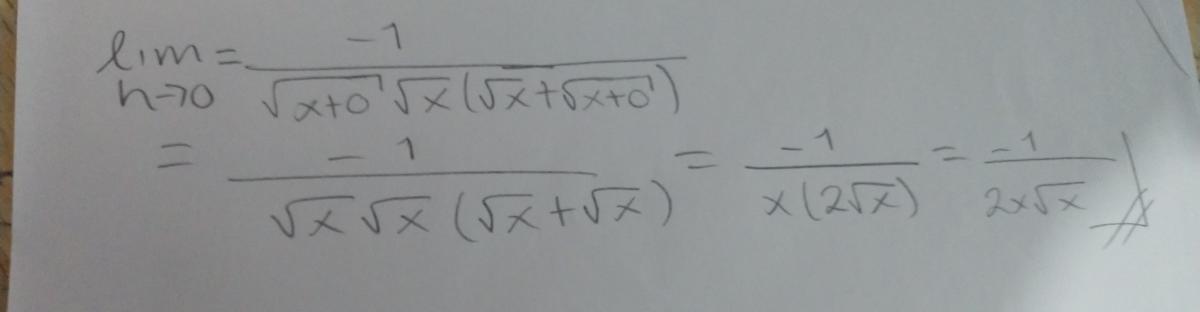 lim = -1 / √x+0 √x(√x+√x+0)
h→0
= -1 / √x √x (√x+√x) = -1 / x(2√x) = -1 / 2x√x //